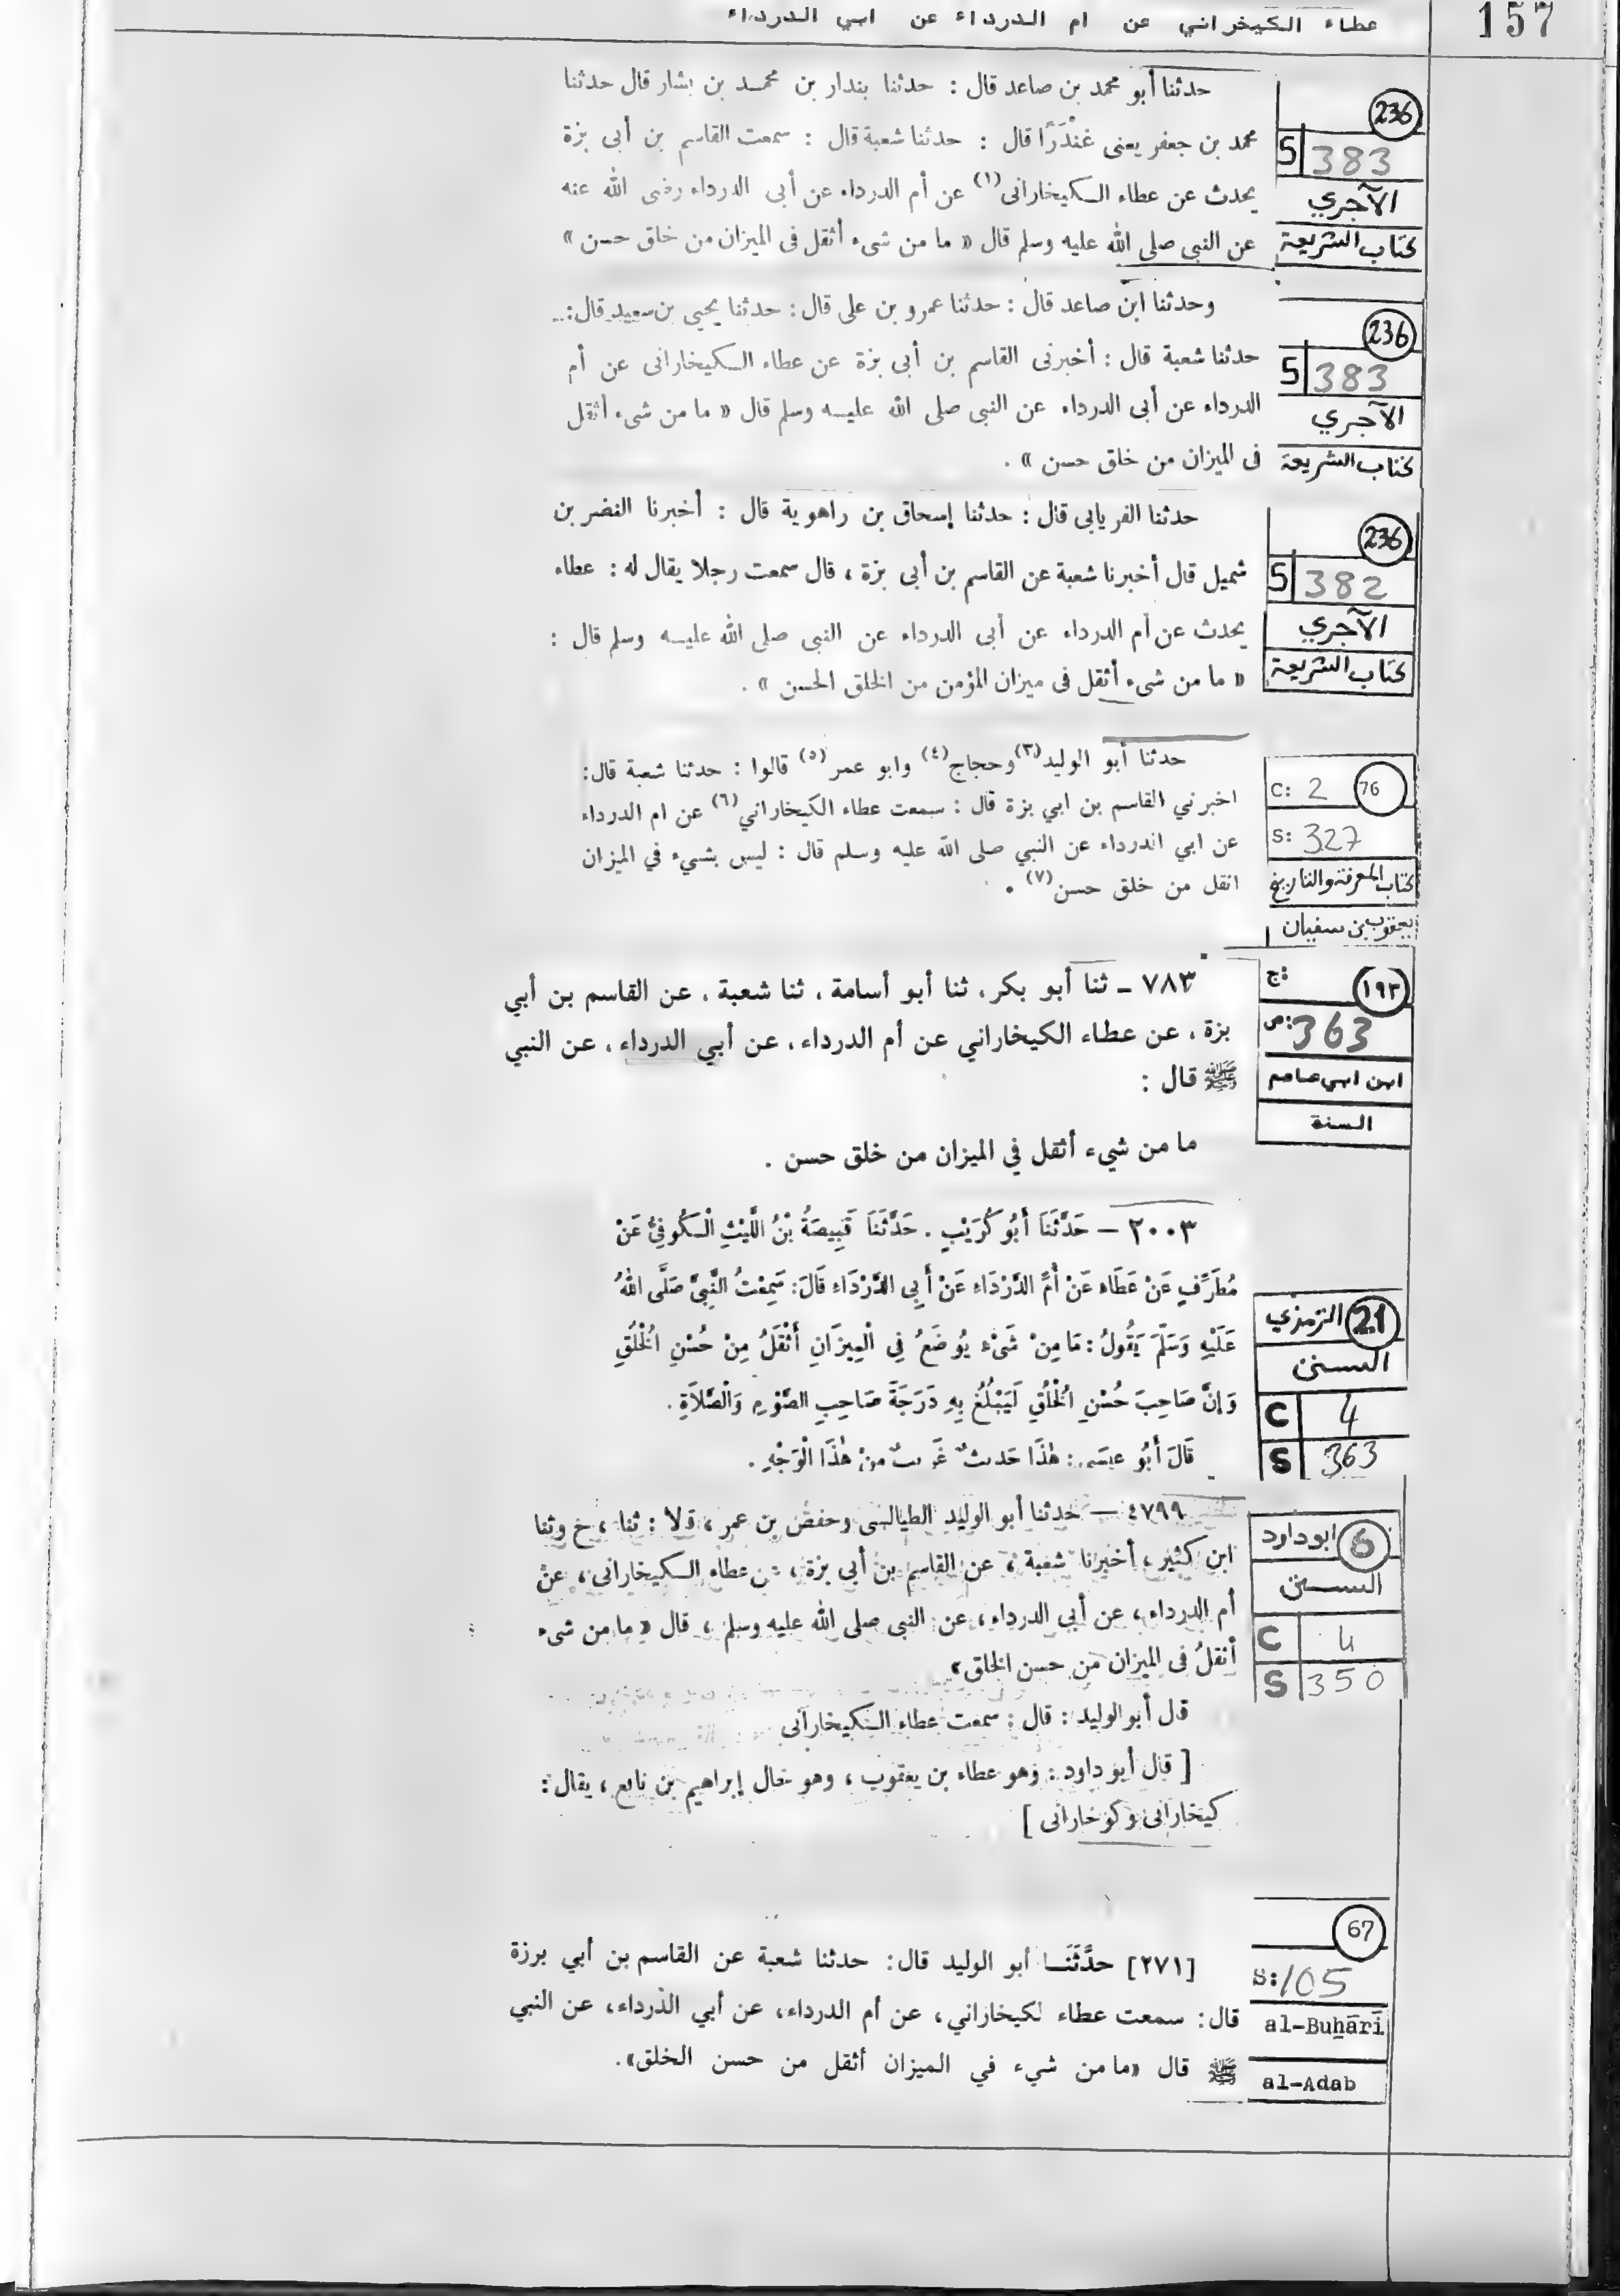 157
عطاء الكيخراني عن ام الدرداء عن ابي الدرداء
236
S 383
الآجري
كتاب الشريعة
حدثنا أبو محمد بن صاعد قال : حدثنا بندار بن محمد بن بشار قال حدثنا
محمد بن جعفر يعنى غنْدَرًا قال : حدثنا شعبة قال : سمعت القاسم بن أبى بزة
يحدث عن عطاء الكيخارانى (١) عن أم الدرداء عن أبى الدرداء رضى الله عنه
عن النبى صلى الله عليه وسلم قال « ما من شىء أثقل فى الميزان من خلق حسن »
236
S 383
الآجري
كتاب الشريعة
وحدثنا ابن صاعد قال : حدثنا عمرو بن على قال : حدثنا يحيى بن سعيد قال :
حدثنا شعبة قال : أخبرنى القاسم بن أبى بزة عن عطاء الكيخارانى عن أم
الدرداء عن أبى الدرداء عن النبى صلى الله عليه وسلم قال « ما من شىء أثقل
فى الميزان من خلق حسن » .
236
S 382
الآجري
كتاب الشريعة
حدثنا الفريابى قال : حدثنا إسحاق بن راهوية قال : أخبرنا النضر بن
شميل قال أخبرنا شعبة عن القاسم بن أبى بزة ، قال سمعت رجلا يقال له : عطاء
يحدث عن أم الدرداء عن أبى الدرداء عن النبى صلى الله عليه وسلم قال :
« ما من شىء أثقل فى ميزان المؤمن من الخلق الحسن » .
C: 2 76
S: 327
كتاب المعرفة والتاريخ
يعقوب بن سفيان
حدثنا أبو الوليد(٣) وحجاج(٤) وابو عمر(٥) قالوا : حدثنا شعبة قال:
اخبرني القاسم بن ابي بزة قال : سمعت عطاء الكيخاراني(٦) عن ام الدرداء
عن ابي الدرداء عن النبي صلى الله عليه وسلم قال : ليس بشيء في الميزان
اثقل من خلق حسن(٧) .
ج: ١٩٣
ص: 363
ابن ابي عاصم
السنة
٧٨٣ ـ ثنا أبو بكر، ثنا أبو أسامة ، ثنا شعبة ، عن القاسم بن أبي
بزة ، عن عطاء الكيخاراني عن أم الدرداء، عن أبي الدرداء ، عن النبي
ﷺ قال :
ما من شيء أثقل في الميزان من خلق حسن .
21 الترمذي
السنن
C 4
S 363
٢٠٠٣ — حَدَّثَنَا أَبُو كُرَيْبٍ . حَدَّثَنَا قَبِيصَةُ بْنُ اللَّيْثِ الْكُوفِيُّ عَنْ
مُطَرِّفٍ عَنْ عَطَاء عَنْ أُمِّ الدَّرْدَاءِ عَنْ أَبِي الدَّرْدَاءِ قَالَ: سَمِعْتُ النَّبِيَّ صَلَّى اللهُ
عَلَيْهِ وَسَلَّمَ يَقُولُ : مَا مِنْ شَىْءٍ يُوضَعُ فِي الْمِيزَانِ أَثْقَلُ مِنْ حُسْنِ الْخُلُقِ
وَإِنَّ صَاحِبَ حُسْنِ الْخُلُقِ لَيَبْلُغُ بِهِ دَرَجَةَ صَاحِبِ الصَّوْمِ وَالصَّلَاةِ .
قَالَ أَبُو عِيسَى : هٰذَا حَدِيثٌ غَرِيبٌ مِنْ هٰذَا الْوَجْهِ .
6 ابو داود
السنن
C 4
S 350
٤٧٩٩ — حدثنا أبو الوليد الطيالسى وحفص بن عمر ، قالا : ثنا ، ح وثنا
ابن كثير ، أخبرنا شعبة ، عن القاسم بن أبى بزة ، عن عطاء الكيخارانى ، عن
أم الدرداء ، عن أبى الدرداء ، عن النبى صلى الله عليه وسلم ، قال « ما من شىء
أثقلُ فى الميزان من حسن الخلق »
قال أبو الوليد : قال : سمعت عطاء الكيخارانى
[ قال أبو داود : وهو عطاء بن يعقوب ، وهو خال إبراهيم بن نافع ، يقال :
كيخارانى وكوخارانى ]
67
S: 105
al-Buḫārī
al-Adab
[٢٧١] حدَّثَنَا أبو الوليد قال: حدثنا شعبة عن القاسم بن أبي برزة
قال: سمعت عطاء لكيخاراني، عن أم الدرداء، عن أبي الدرداء، عن النبي
ﷺ قال «ما من شيء في الميزان أثقل من حسن الخلق».